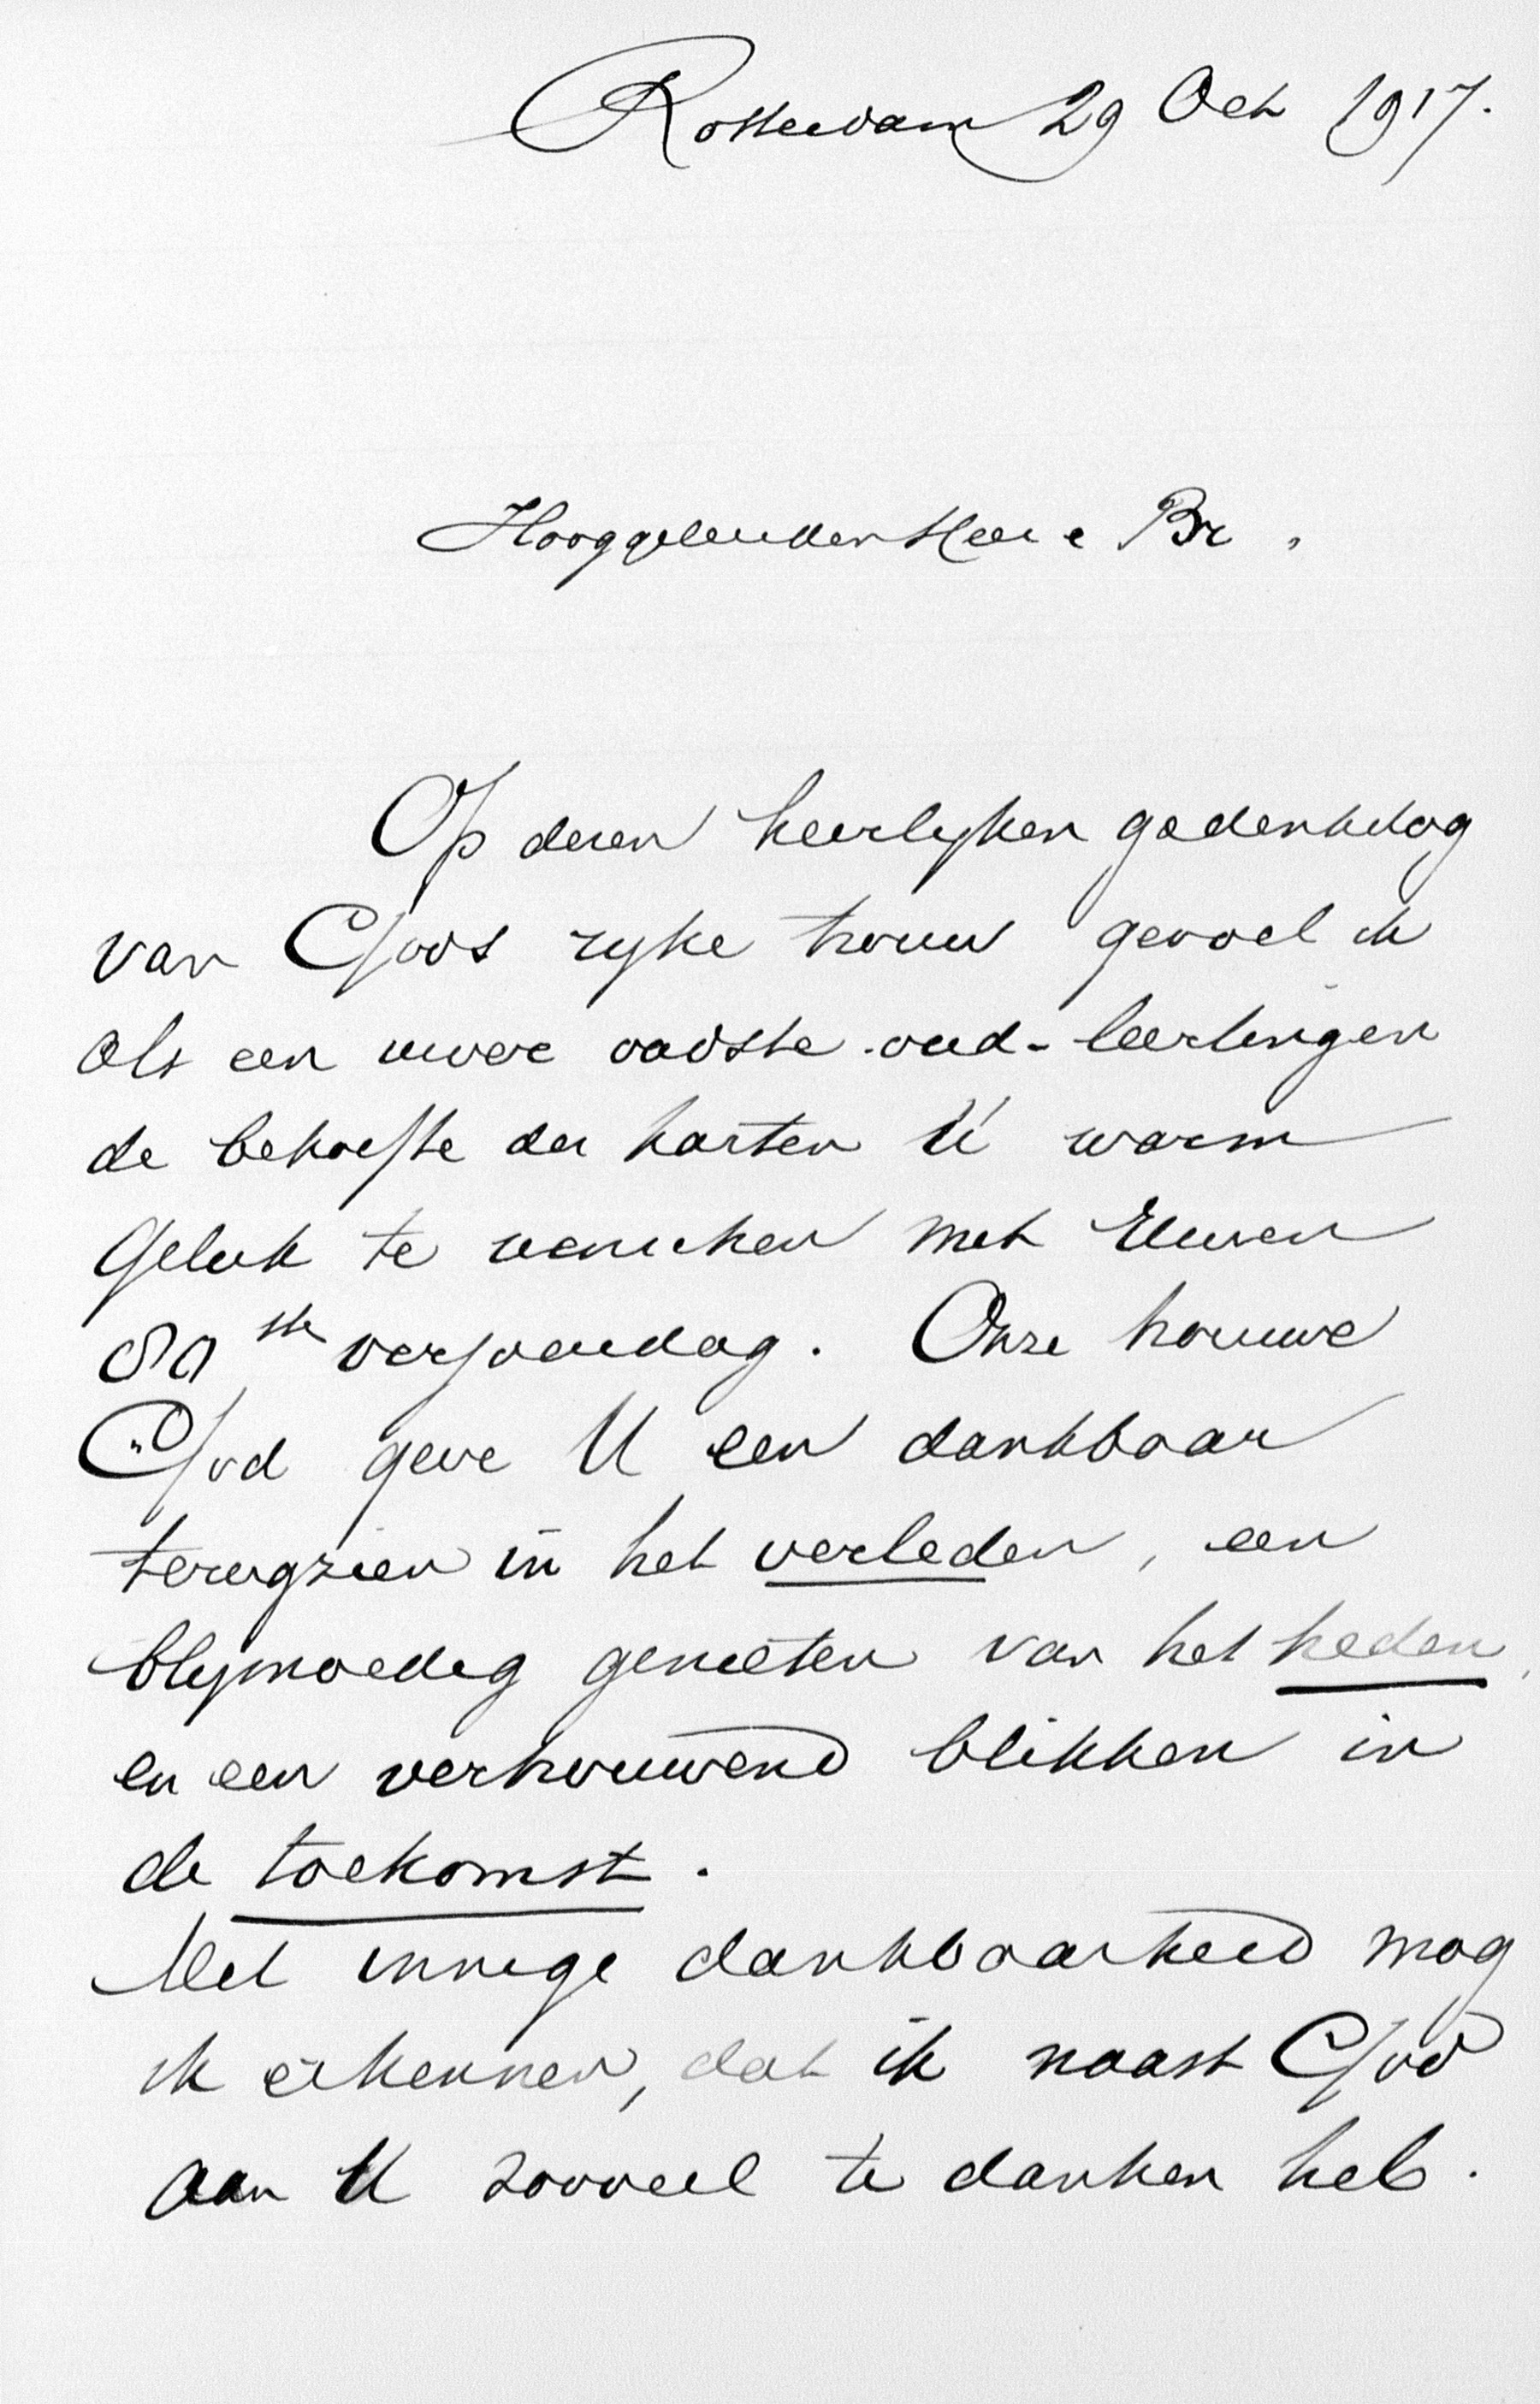 Rotterdam 29 Oct 1917.
Hooggeleerden Heer & Br,
Op dezen heerlyken gedenkdag
van Gods ryke trouw gevoel ik
als een uwer oudste oud-leerlingen
de behoefte der harten U warm
geluk te wenschen met Uwen
80 ste verjaardag. Onze trouwe
God geve U een dankbaar
terugzien in het verleden, een
blymoedig genieten van het heden,
en een vertrouwend blikken in
de toekomst.
Met innige dankbaarheid mag
ik erkennen, dat ik naast God
aan U zooveel te danken heb.